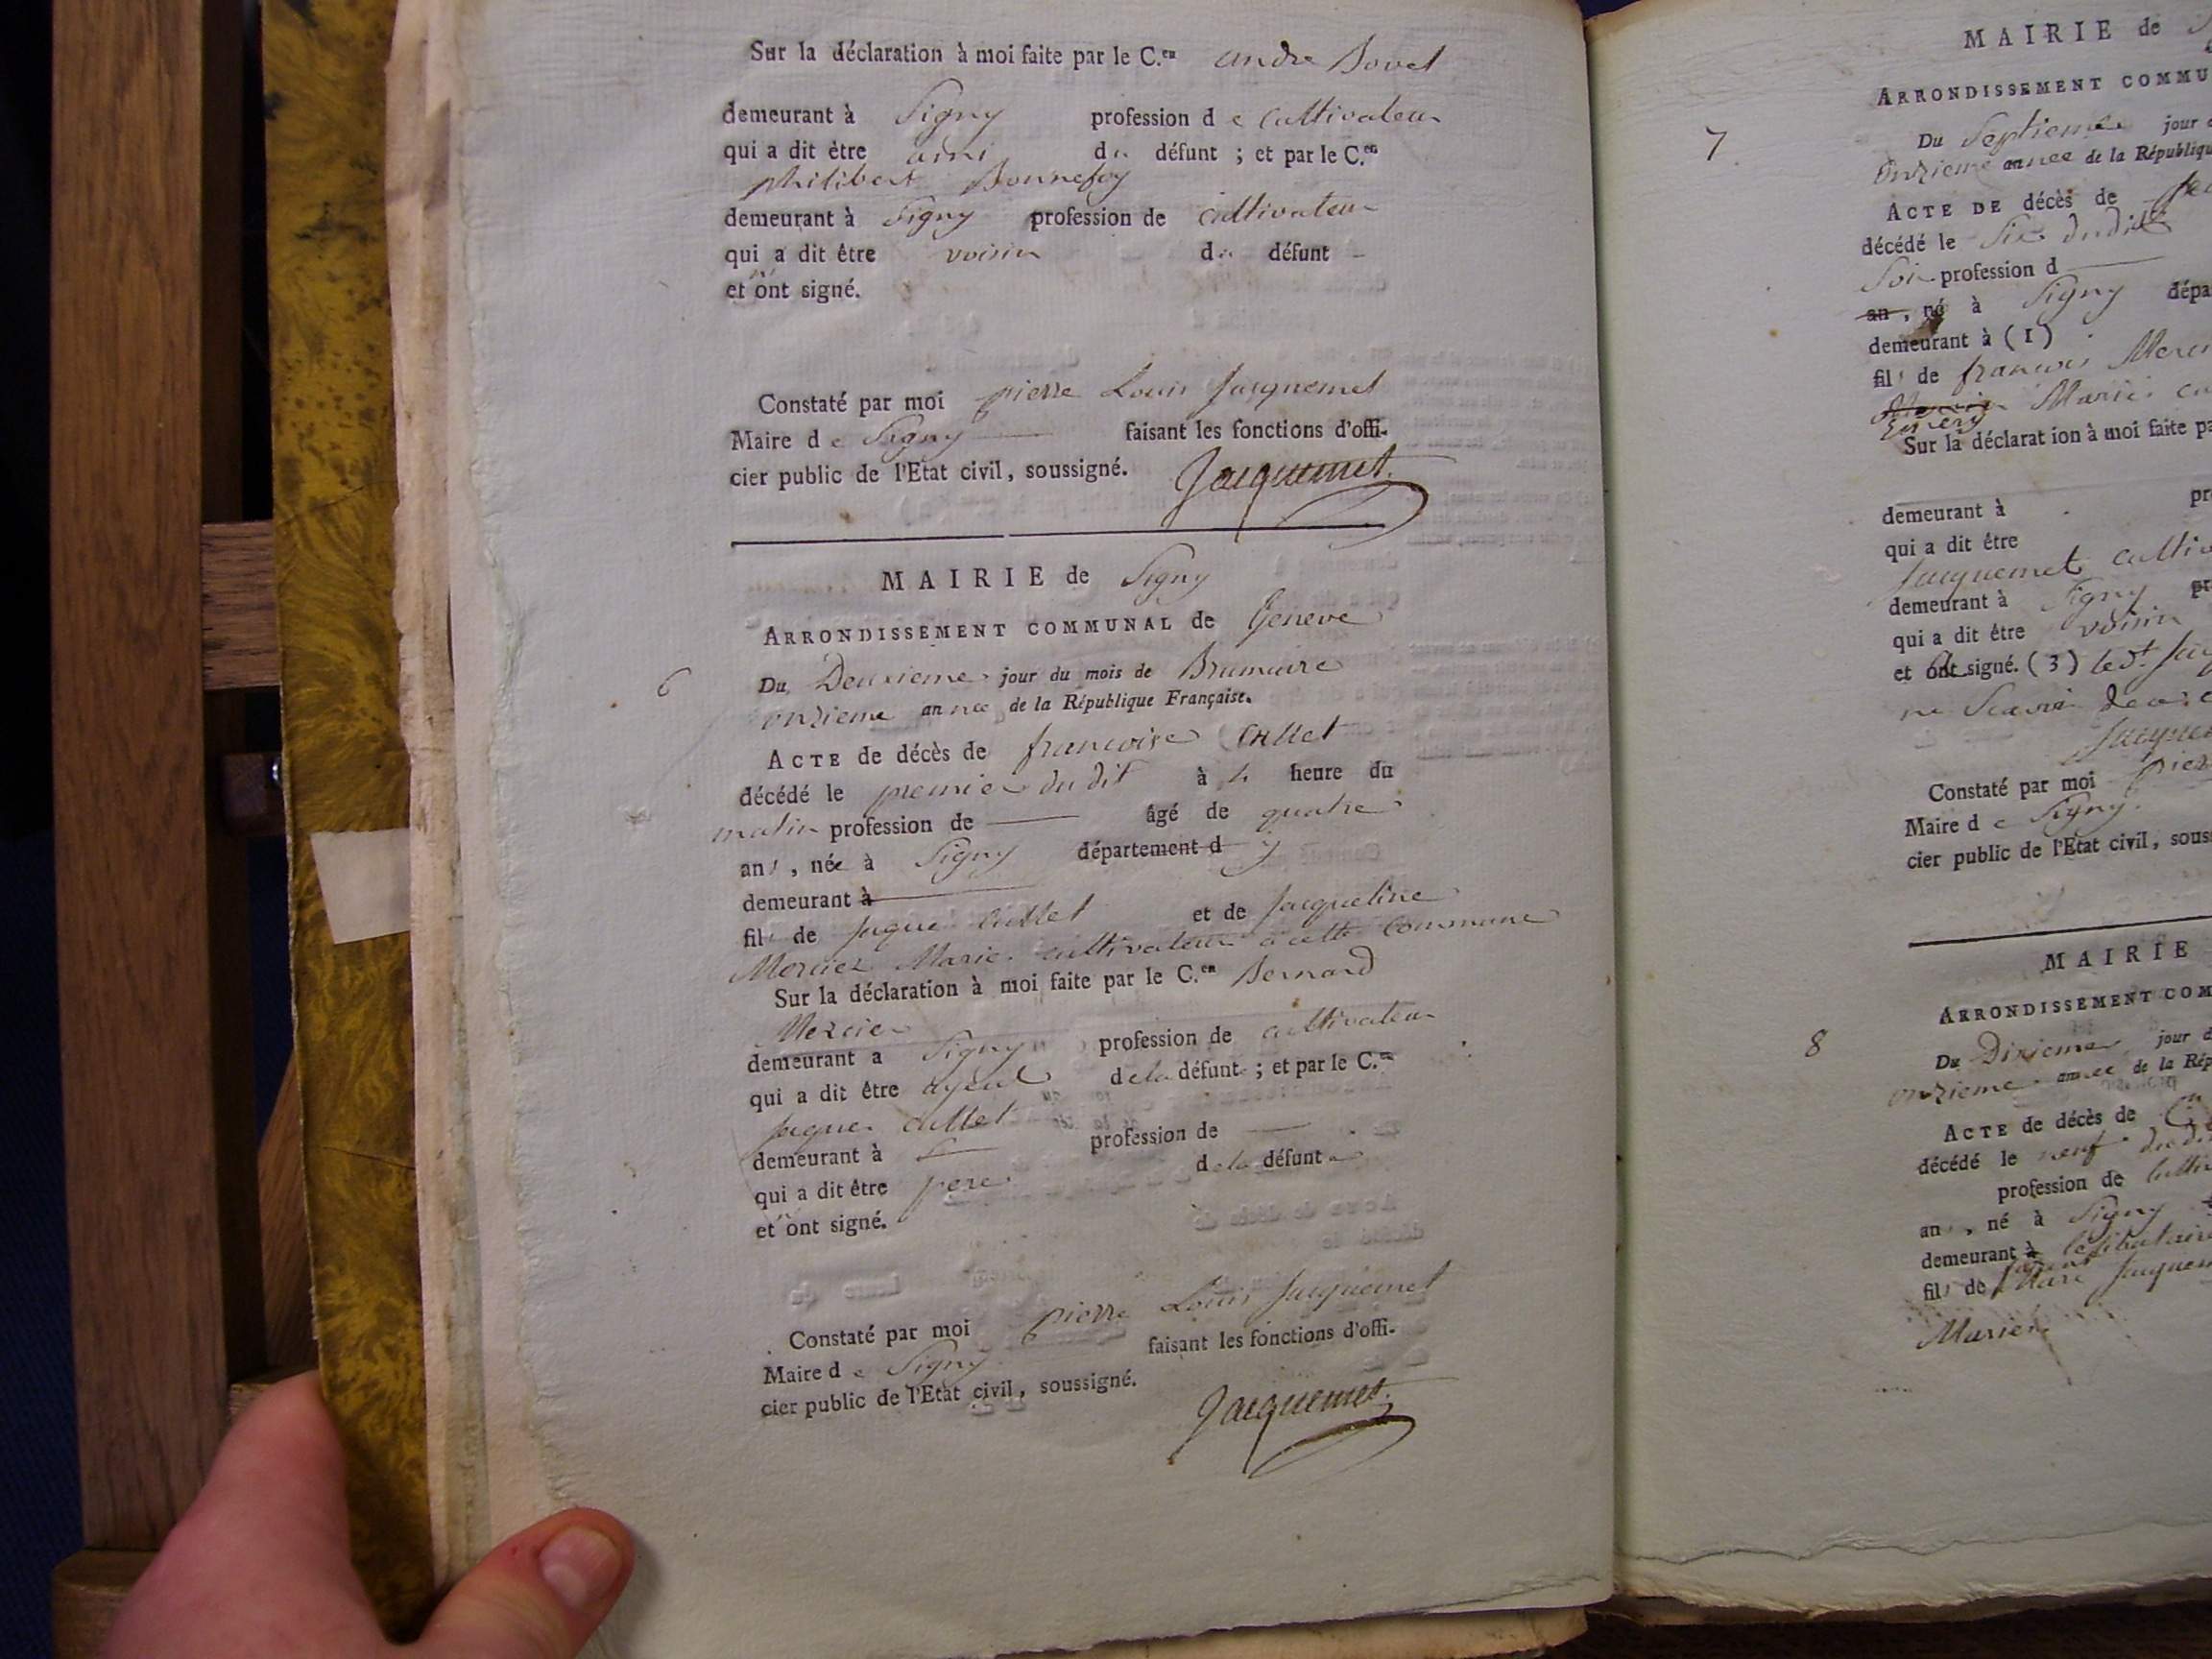 Sur la déclaration à moi faite par le C.en andre Bovet
demeurant à Signy profession de cultivateur
qui a dit être ami du défunt ; et par le C.en
philibert Bonnefoy
demeurant à Signy profession de cultivateur
qui a dit être voisin du défunt
et n'ont signé.
Constaté par moi pierre Louis Jacquemet
Maire de Signy faisant les fonctions d'offi-
cier public de l'Etat civil, soussigné. Jacquemet
MAIRIE de Signy
ARRONDISSEMENT COMMUNAL de Geneve
6
Du Deuxieme jour du mois de Brumaire
onzieme année de la République Française.
ACTE de décès de francoise Cullet
décédé le premier du dit à 4 heure du
matin profession de âgé de quatre
ans, née à Signy département d
demeurant à
fil de Jaque Cullet et de Jacqueline
Mercier Marié cultivateur a cette Commune
Sur la déclaration à moi faite par le C.en Bernard
Mercier
demeurant a Signy profession de cultivateur
qui a dit être ayeul de la défunte ; et par le C.en
Jaque Cullet
demeurant à profession de
qui a dit être pere de la défunte
et n'ont signé.
Constaté par moi pierre Louis Jacquemet
Maire de Signy faisant les fonctions d'offi-
cier public de l'Etat civil, soussigné.
Jacquemet
MAIRIE de
ARRONDISSEMENT COMMU
7
Du Septieme jour
Onzieme année de la Républiqu
ACTE DE décès de
décédé le Six dudit
Soir profession d
an, né à Signy dépa
demeurant à (1)
fils de francois
Marié
Emery
Sur la déclarat ion à moi faite pa
demeurant à pr
qui a dit être
Jacquemet
demeurant à Signy pr
qui a dit être voisin
et ont signé. (3) led.t
ne
Constaté par moi
Maire de Signy
cier public de l'Etat civil, sous
MAIRIE
ARRONDISSEMENT COM
8
Du Dixieme jour d
onzieme année de la Rép
ACTE de décès de
décédé le neuf dudi
profession de
ans, né à Signy
demeurant à
fils de
Mariés